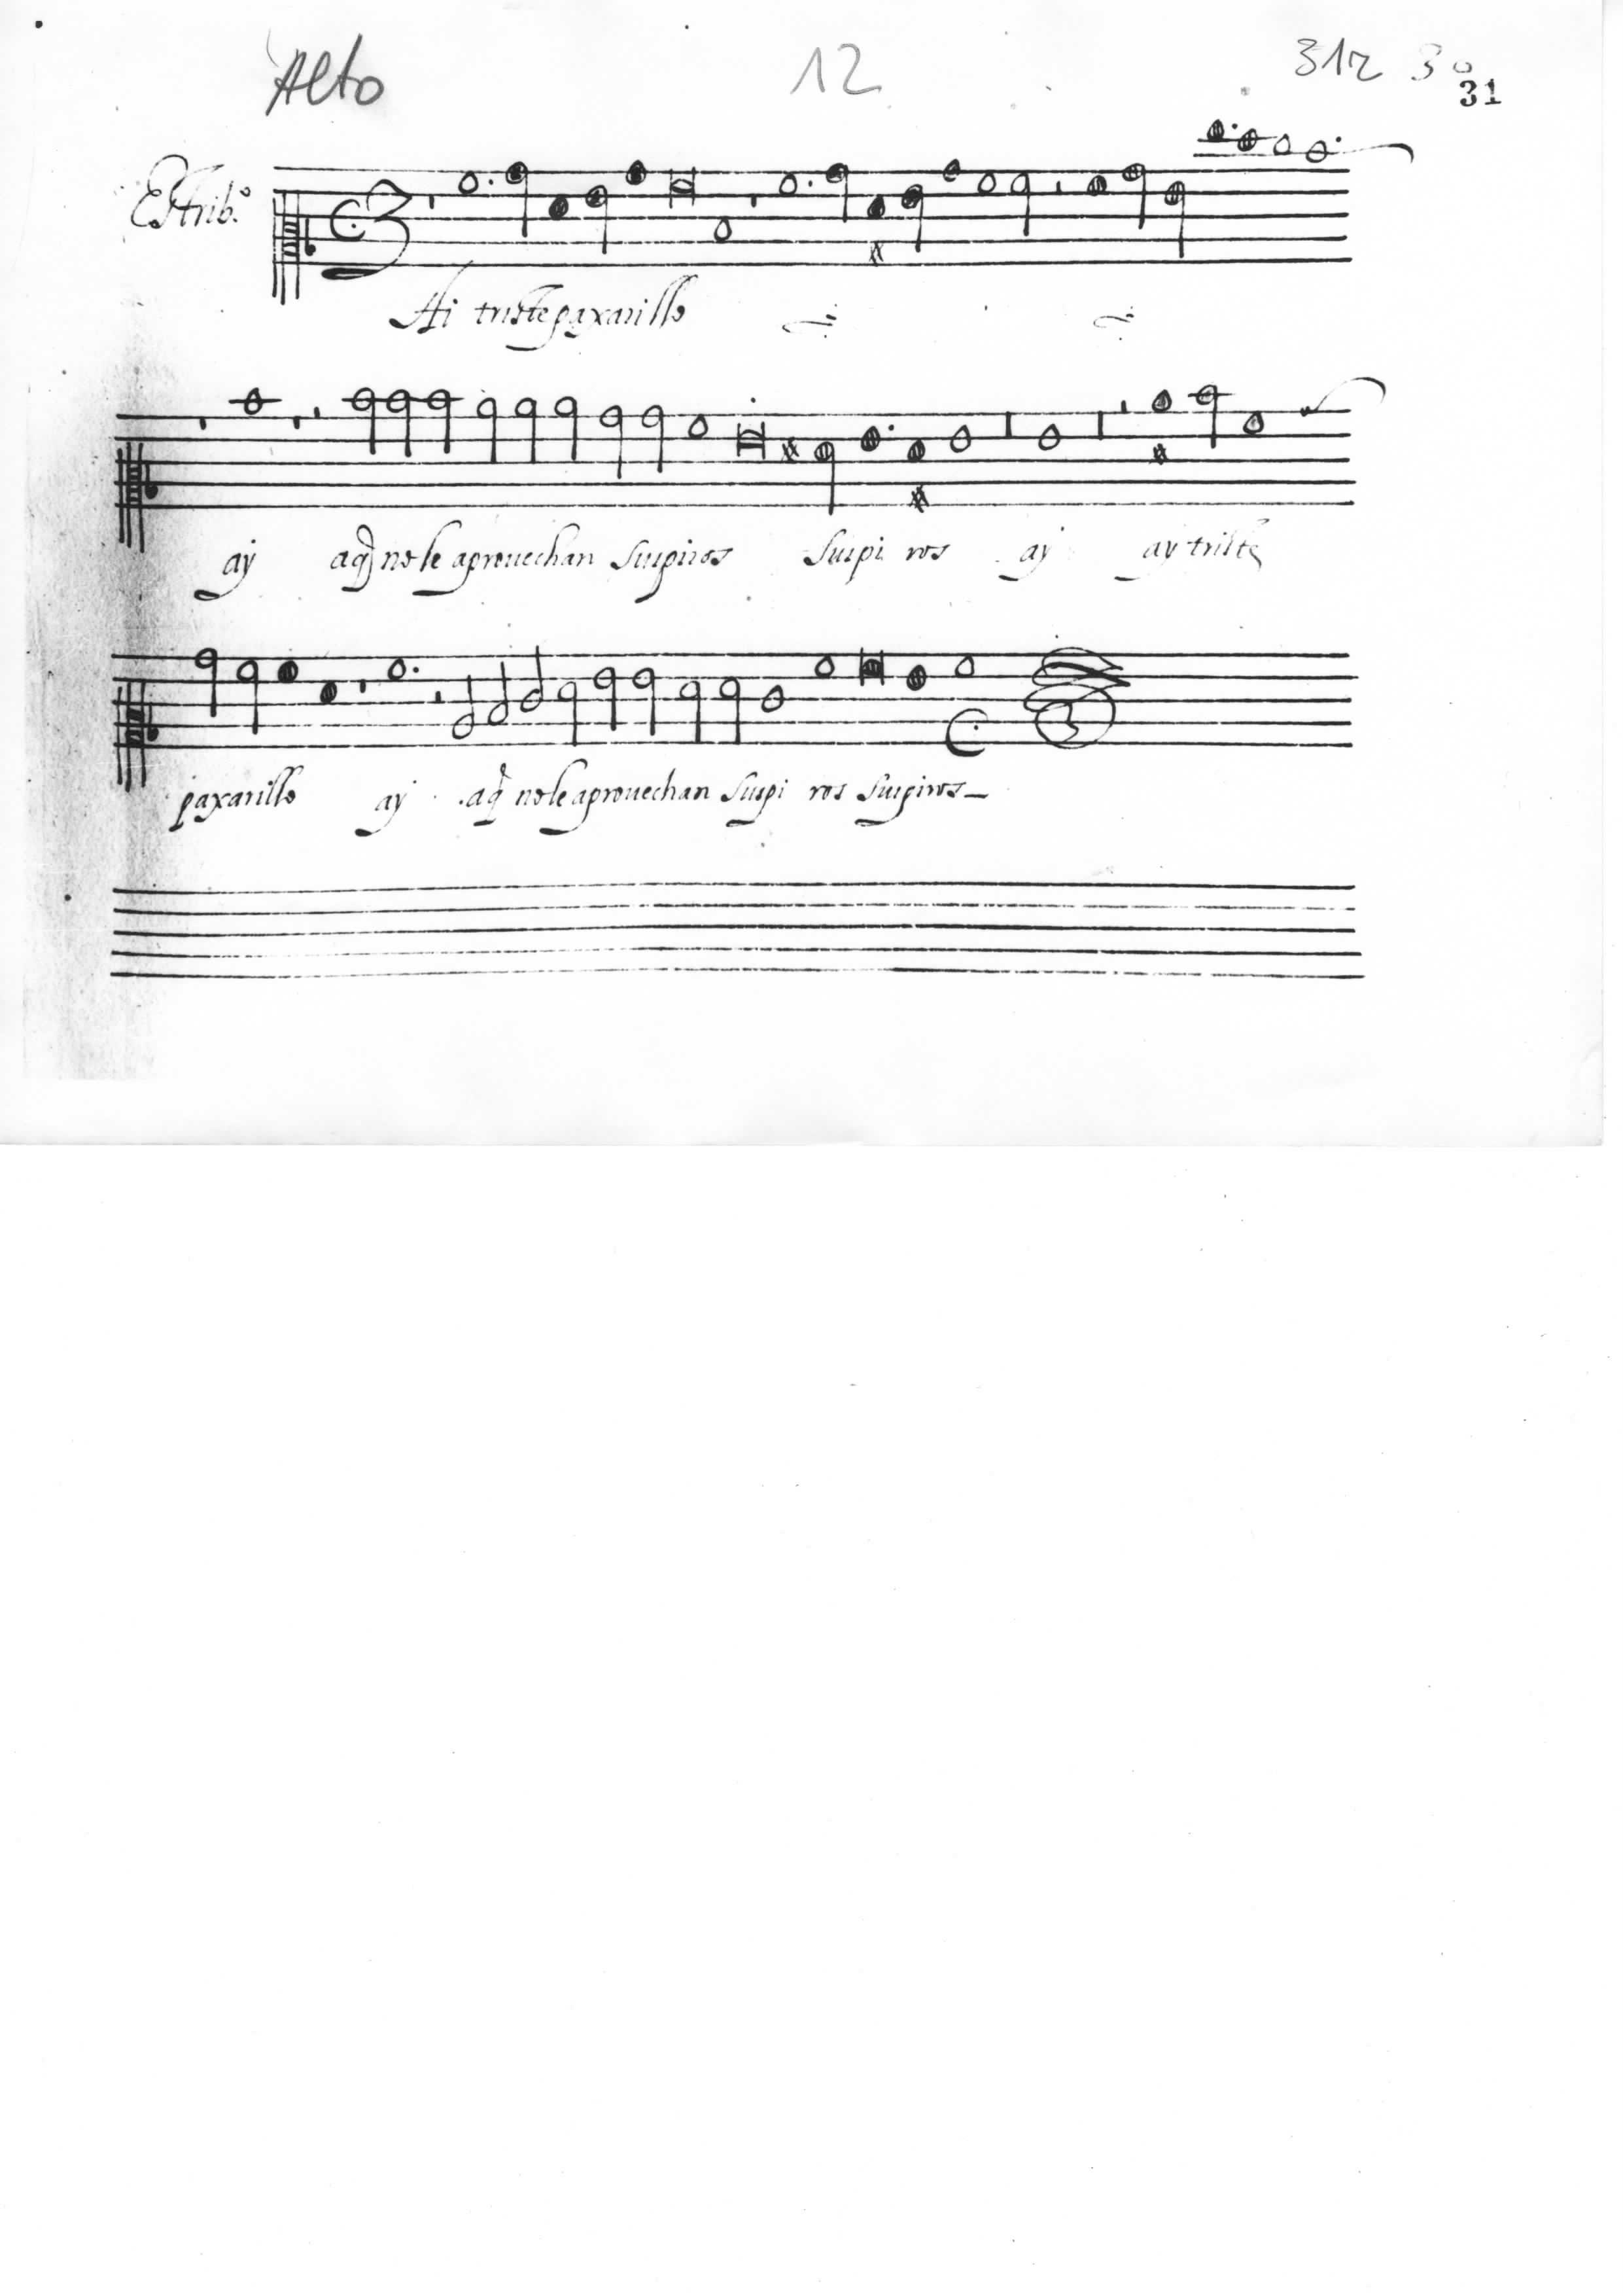 Alto 12 31r 30
31
Estrib.º
Ai triste paxarillo
ay aq̃ no le aprouechan suspiros suspi ros ay ay triste
paxarillo ay aq̃ no le aprouechan suspi ros suspiros